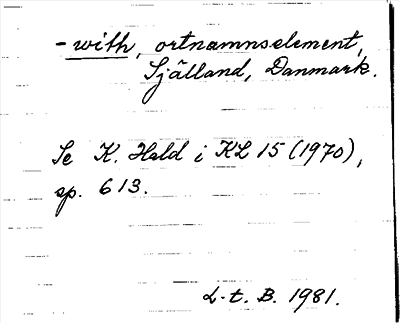 -with, ortnamnselement,
Själland, Danmark.
Se K. Hald i KL 15 (1970),
sp. 613.
L-t. B. 1981.